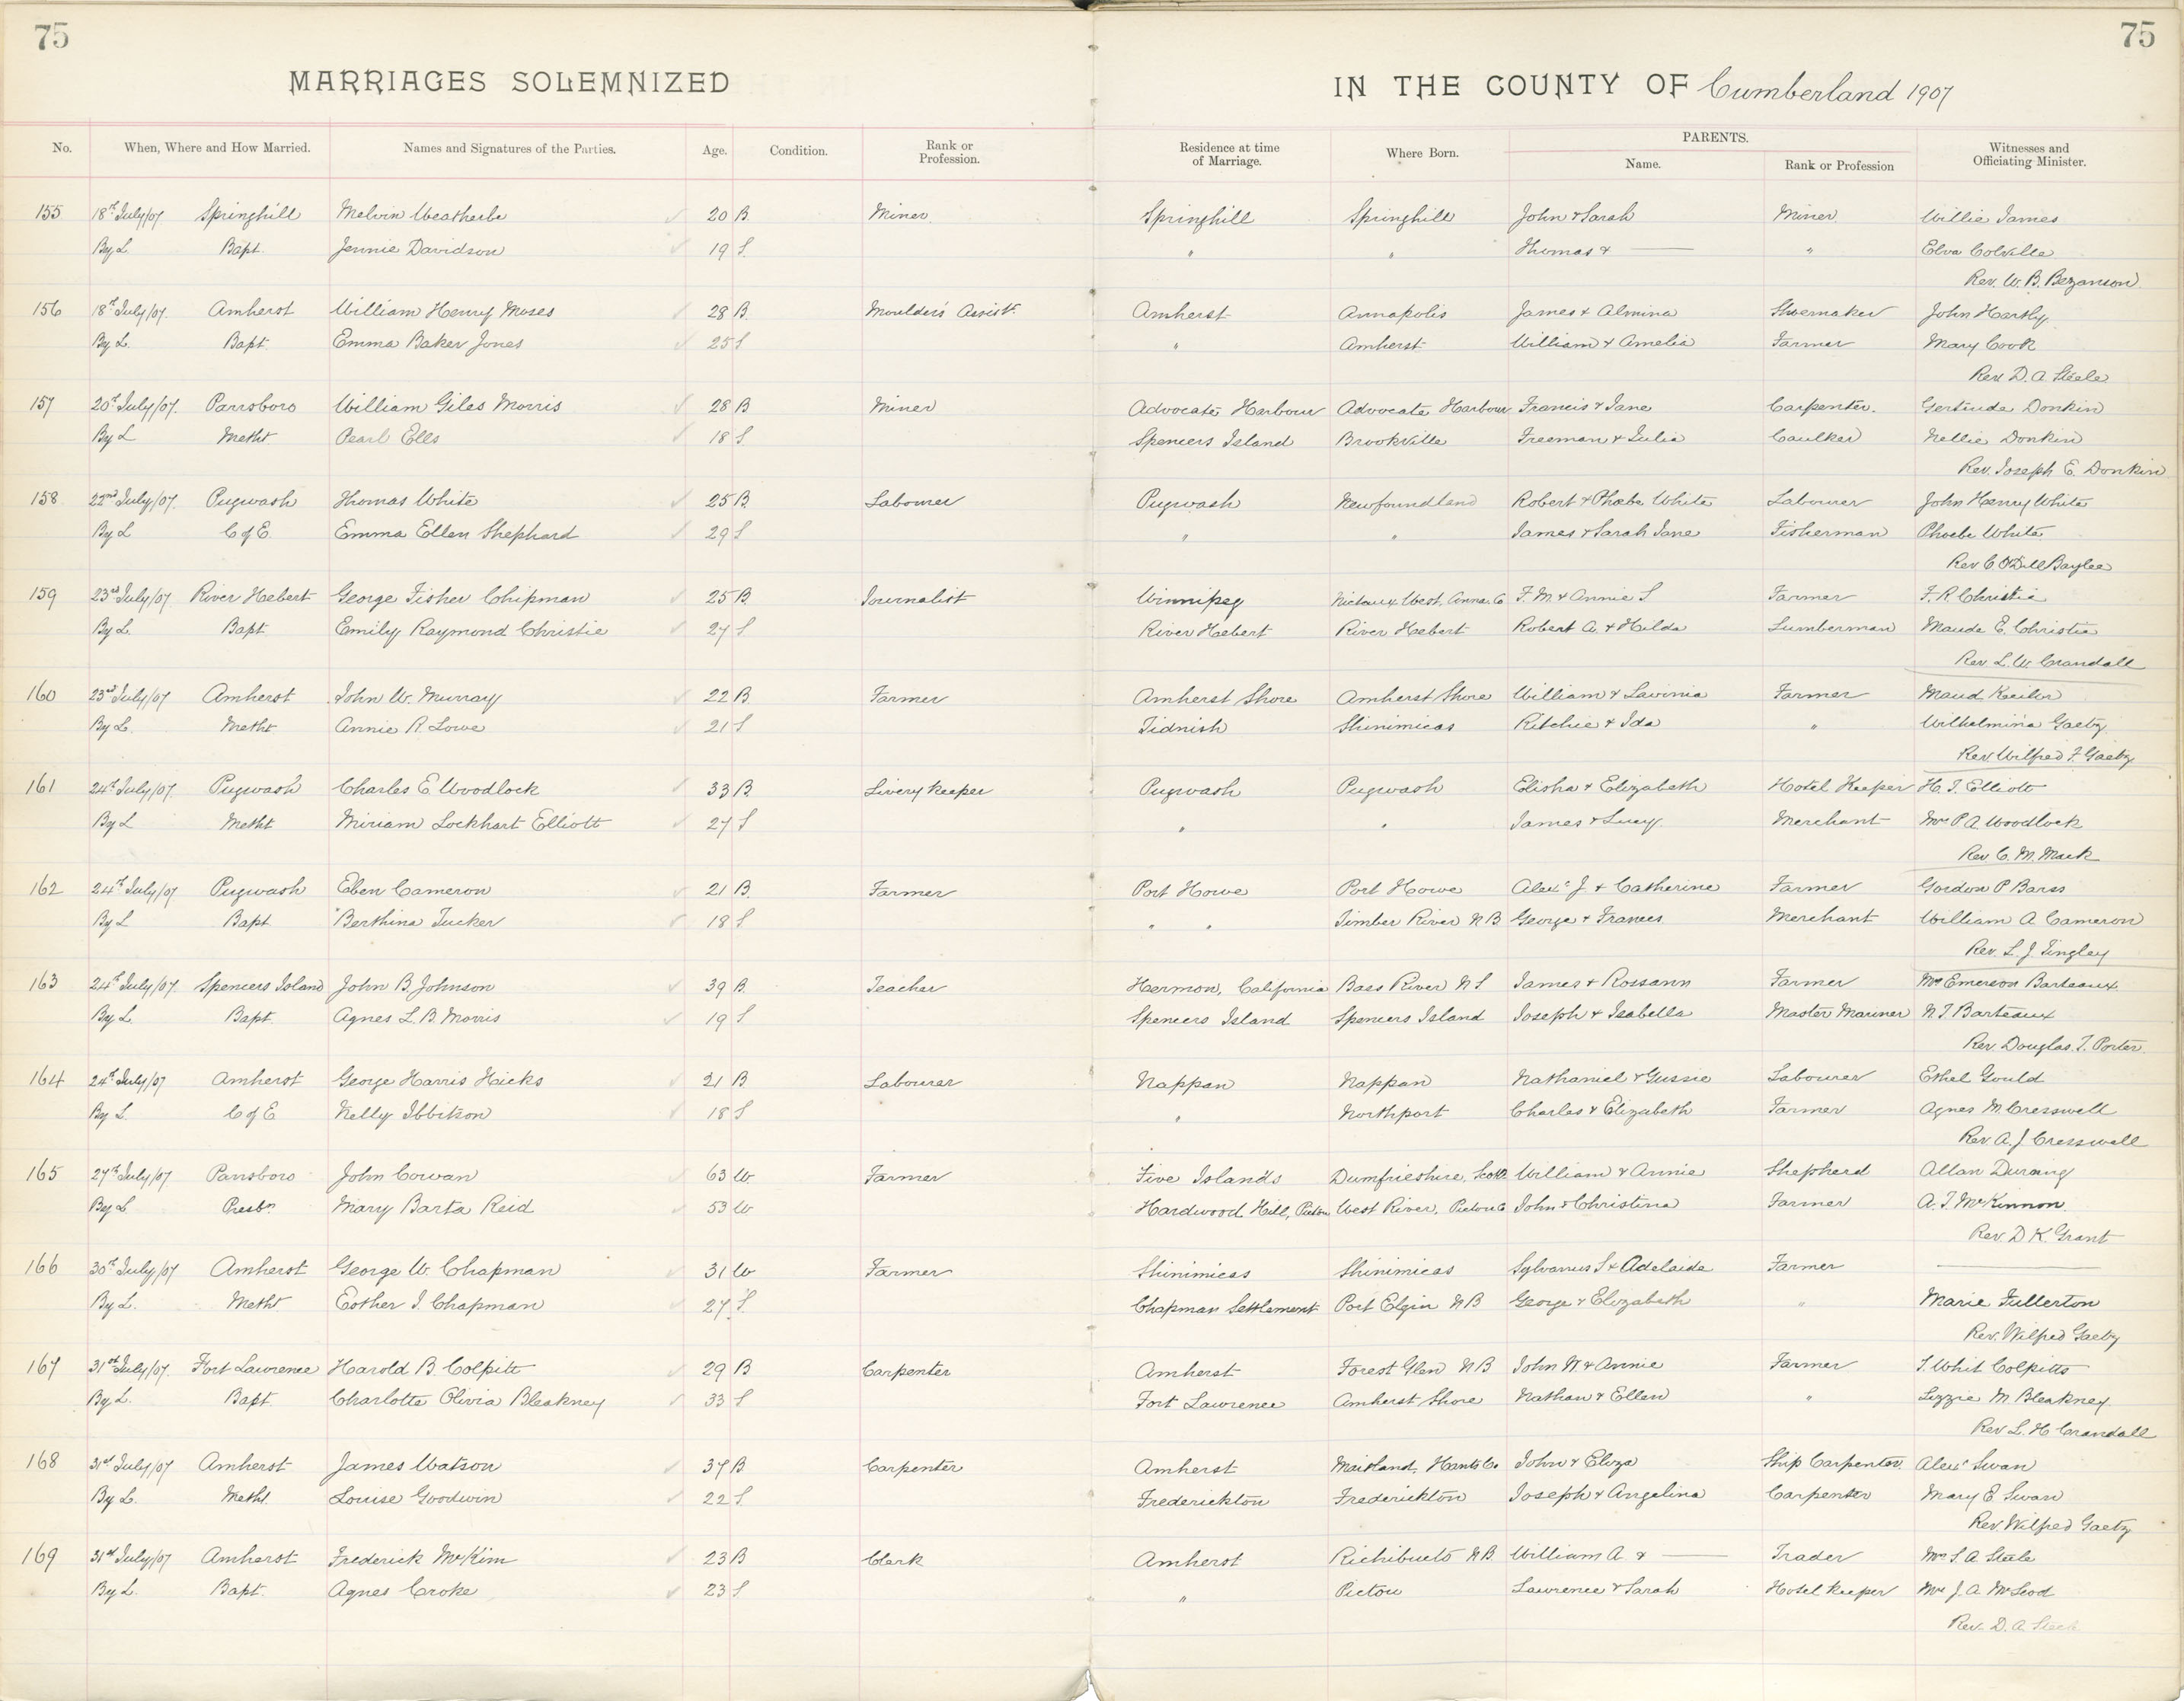 75
75
MARRIAGES SOLEMNIZED
IN THE COUNTY OF Cumberland 1907
No. When, Where and How Married. Names and Signatures of the Parties. Age. Condition. Rank or Profession. Residence at time of Marriage. Where Born. PARENTS. Name. Rank or Profession Witnesses and Officiating Minister.
155 18th July/07 Springhill Melvin Weatherbe 20 B. Miner Springhill Springhill John & Sarah Miner Willie James
By L. Bapt. Jennie Davidson 19 S. " " Thomas & — " Elva Colville
Rev. W. B. Bezanson
156 18th July/07. Amherst William Henry Moses 28 B. Moulders Assist. Amherst Annapolis James & Almina Shoemaker John Hartly
By L. Bapt. Emma Baker Jones 25 S " Amherst William & Amelia Farmer Mary Cook
Rev. D. A. Steele
157 20th July/07. Parrsboro William Giles Morris 28 B Miner Advocate Harbour Advocate Harbour Francis & Jane Carpenter. Gertrude Donkin
By L Metht Pearl Ells 18 S. Spencers Island Brookville Freeman & Julia Caulker Nellie Donkin
Rev. Joseph E. Donkin
158 22nd July/07. Pugwash Thomas White 25 B. Labourer Pugwash Newfoundland Robert & Phœbe White Labourer John Henry White
By L C of E. Emma Ellen Shephard 29 S " " James & Sarah Jane Fisherman Phoebe White
Rev C O'Dell Baylee
159 23rd July/07 River Hebert George Fisher Chipman 25 B. Journalist Winnipeg Nictaux West, Anna. Co F. M. & Annie S Farmer F. R. Christie
By L. Bapt. Emily Raymond Christie 27 S River Hebert River Hebert Robert A. & Hilda Lumberman Maude E. Christie
Rev. L. W. Crandall
160 23rd July/07 Amherst John W. Murray 22 B Farmer Amherst Shore Amherst Shore William & Lavinia Farmer Maud Keiler
By L. Metht Annie R. Lowe 21 S Tidnish Shinimicas Ritchie & Ida " Wilhelmina Gaetz
Rev. Wilfred F. Gaetz
161 24th July/07. Pugwash Charles E. Woodlock 33 B. Livery Keeper Pugwash Pugwash Elisha & Elizabeth Hotel Keeper H. T. Elliott
By L Metht Miriam Lockhart Elliott 27 S " " James & Lucy. Merchant Mrs P. A. Woodlock
Rev C. M. Mack
162 24th July/07 Pugwash Eben Cameron 21 B. Farmer Port Howe Port Howe Alexr J. & Catherine Farmer Gordon P Barss
By L Bapt. Berthina Tucker 18 S " " Timber River N B George & Frances Merchant William A Cameron
Rev. L. J. Tingley
163 24th July/07. Spencers Island John B. Johnson 39 B. Teacher Hermon, California Bass River N S James & Rossann Farmer Mrs Emerson Barteaux
By L. Bapt. Agnes L. B. Morris 19 S Spencers Island Spencers Island Joseph & Isabella Master Mariner N. T. Barteaux
Rev. Douglas. T. Porter.
164 24th July/07 Amherst George Harris Hicks 21 B Labourer Nappan Nappan Nathaniel & Gussie Labourer Ethel Gould
By L. C of E Nelly Ibbitson 18 S " Northport Charles & Elizabeth Farmer Agnes M. Cresswell
Rev A. J Cresswell
165 27th July/07 Parrsboro John Cowan 63 W Farmer Five Islands Dumfrieshire, Scotld William & Annie Shepherd Allan Durning
By L Presbn Mary Barta Reid 53 W Hardwood Hill, Pictou West River, Pictou Co John & Christina Farmer A. T. McKinnon.
Rev. D K. Grant
166 30th July/07 Amherst George W. Chapman 31 W Farmer Shinimicas Shinimicas Sylvanus S & Adelaide Farmer —
By L. Metht Esther J. Chapman 27 S. Chapman Settlement Port Elgin N B George & Elizabeth " Marie Fullerton
Rev. Wilfred Gaetz
167 31st July/07. Fort Lawrence Harold B. Colpitt 29 B Carpenter Amherst Forest Glen N B John W. & Annie Farmer T. Whit Colpitts
By L. Bapt. Charlotte Olivia Bleakney 33 S Fort Lawrence Amherst Shore Nathan & Ellen " Lizzie M. Bleakney
Rev. L. H Crandall
168 31st July/07 Amherst James Watson 37 B. Carpenter Amherst Maitland, Hants Co. John & Eliza Ship Carpenter. Alexr Swan
By L. Metht. Louise Goodwin 22 S. Frederickton Frederickton Joseph & Angelina Carpenter Mary E Swan
Rev. Wilfred Gaetz
169 31st July/07 Amherst Frederick McKim 23 B Clerk Amherst Richibucto N B William A. & — Trader Mrs S. A Steele
By L. Bapt. Agnes Croke 23 S " Pictou Lawrence & Sarah Hotel Keeper Mrs J. A. McLeod
Rev. D. A. Steele